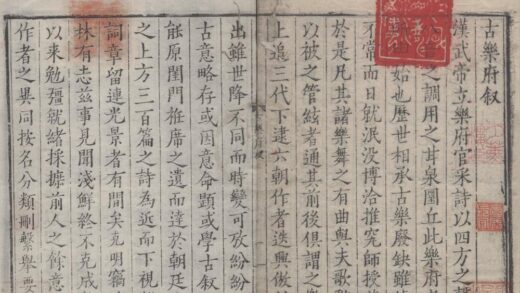 古樂府叙
漢武帝立樂府官采詩以四方之聲
之調用之甘泉圜丘此樂府
始也歷世相承古樂廢缺雖
不常而日就泯没博洽推究師授
於是凡其諸樂舞之有曲與夫歌
以被之管絃者通其前後俱謂之
上追三代下逮六朝作者迭興倣
出雖世降不同而時變可放紛紛
古意略存或因意命題或學古叙
能原閨門袵席之遺而達於朝廷
之上方三百篇之詩為近而下視
詞章留連光景者有間矣克明竊
林有志茲事見聞淺鮮終不克成
以来勉彊就緒採摭前人之餘意
作者之異同按名分類刪繫舉要